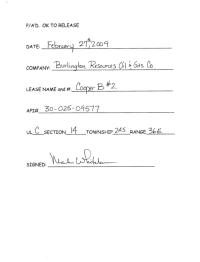 P/A'D. OK TO RELEASE
DATE: February 27th, 2009
COMPANY: Burlington Resources Oil & Gas Co.
LEASE NAME and #: Cooper B #2
API# 30-025-09577
UL C SECTION 14 TOWNSHIP 24S RANGE 36E
SIGNED: